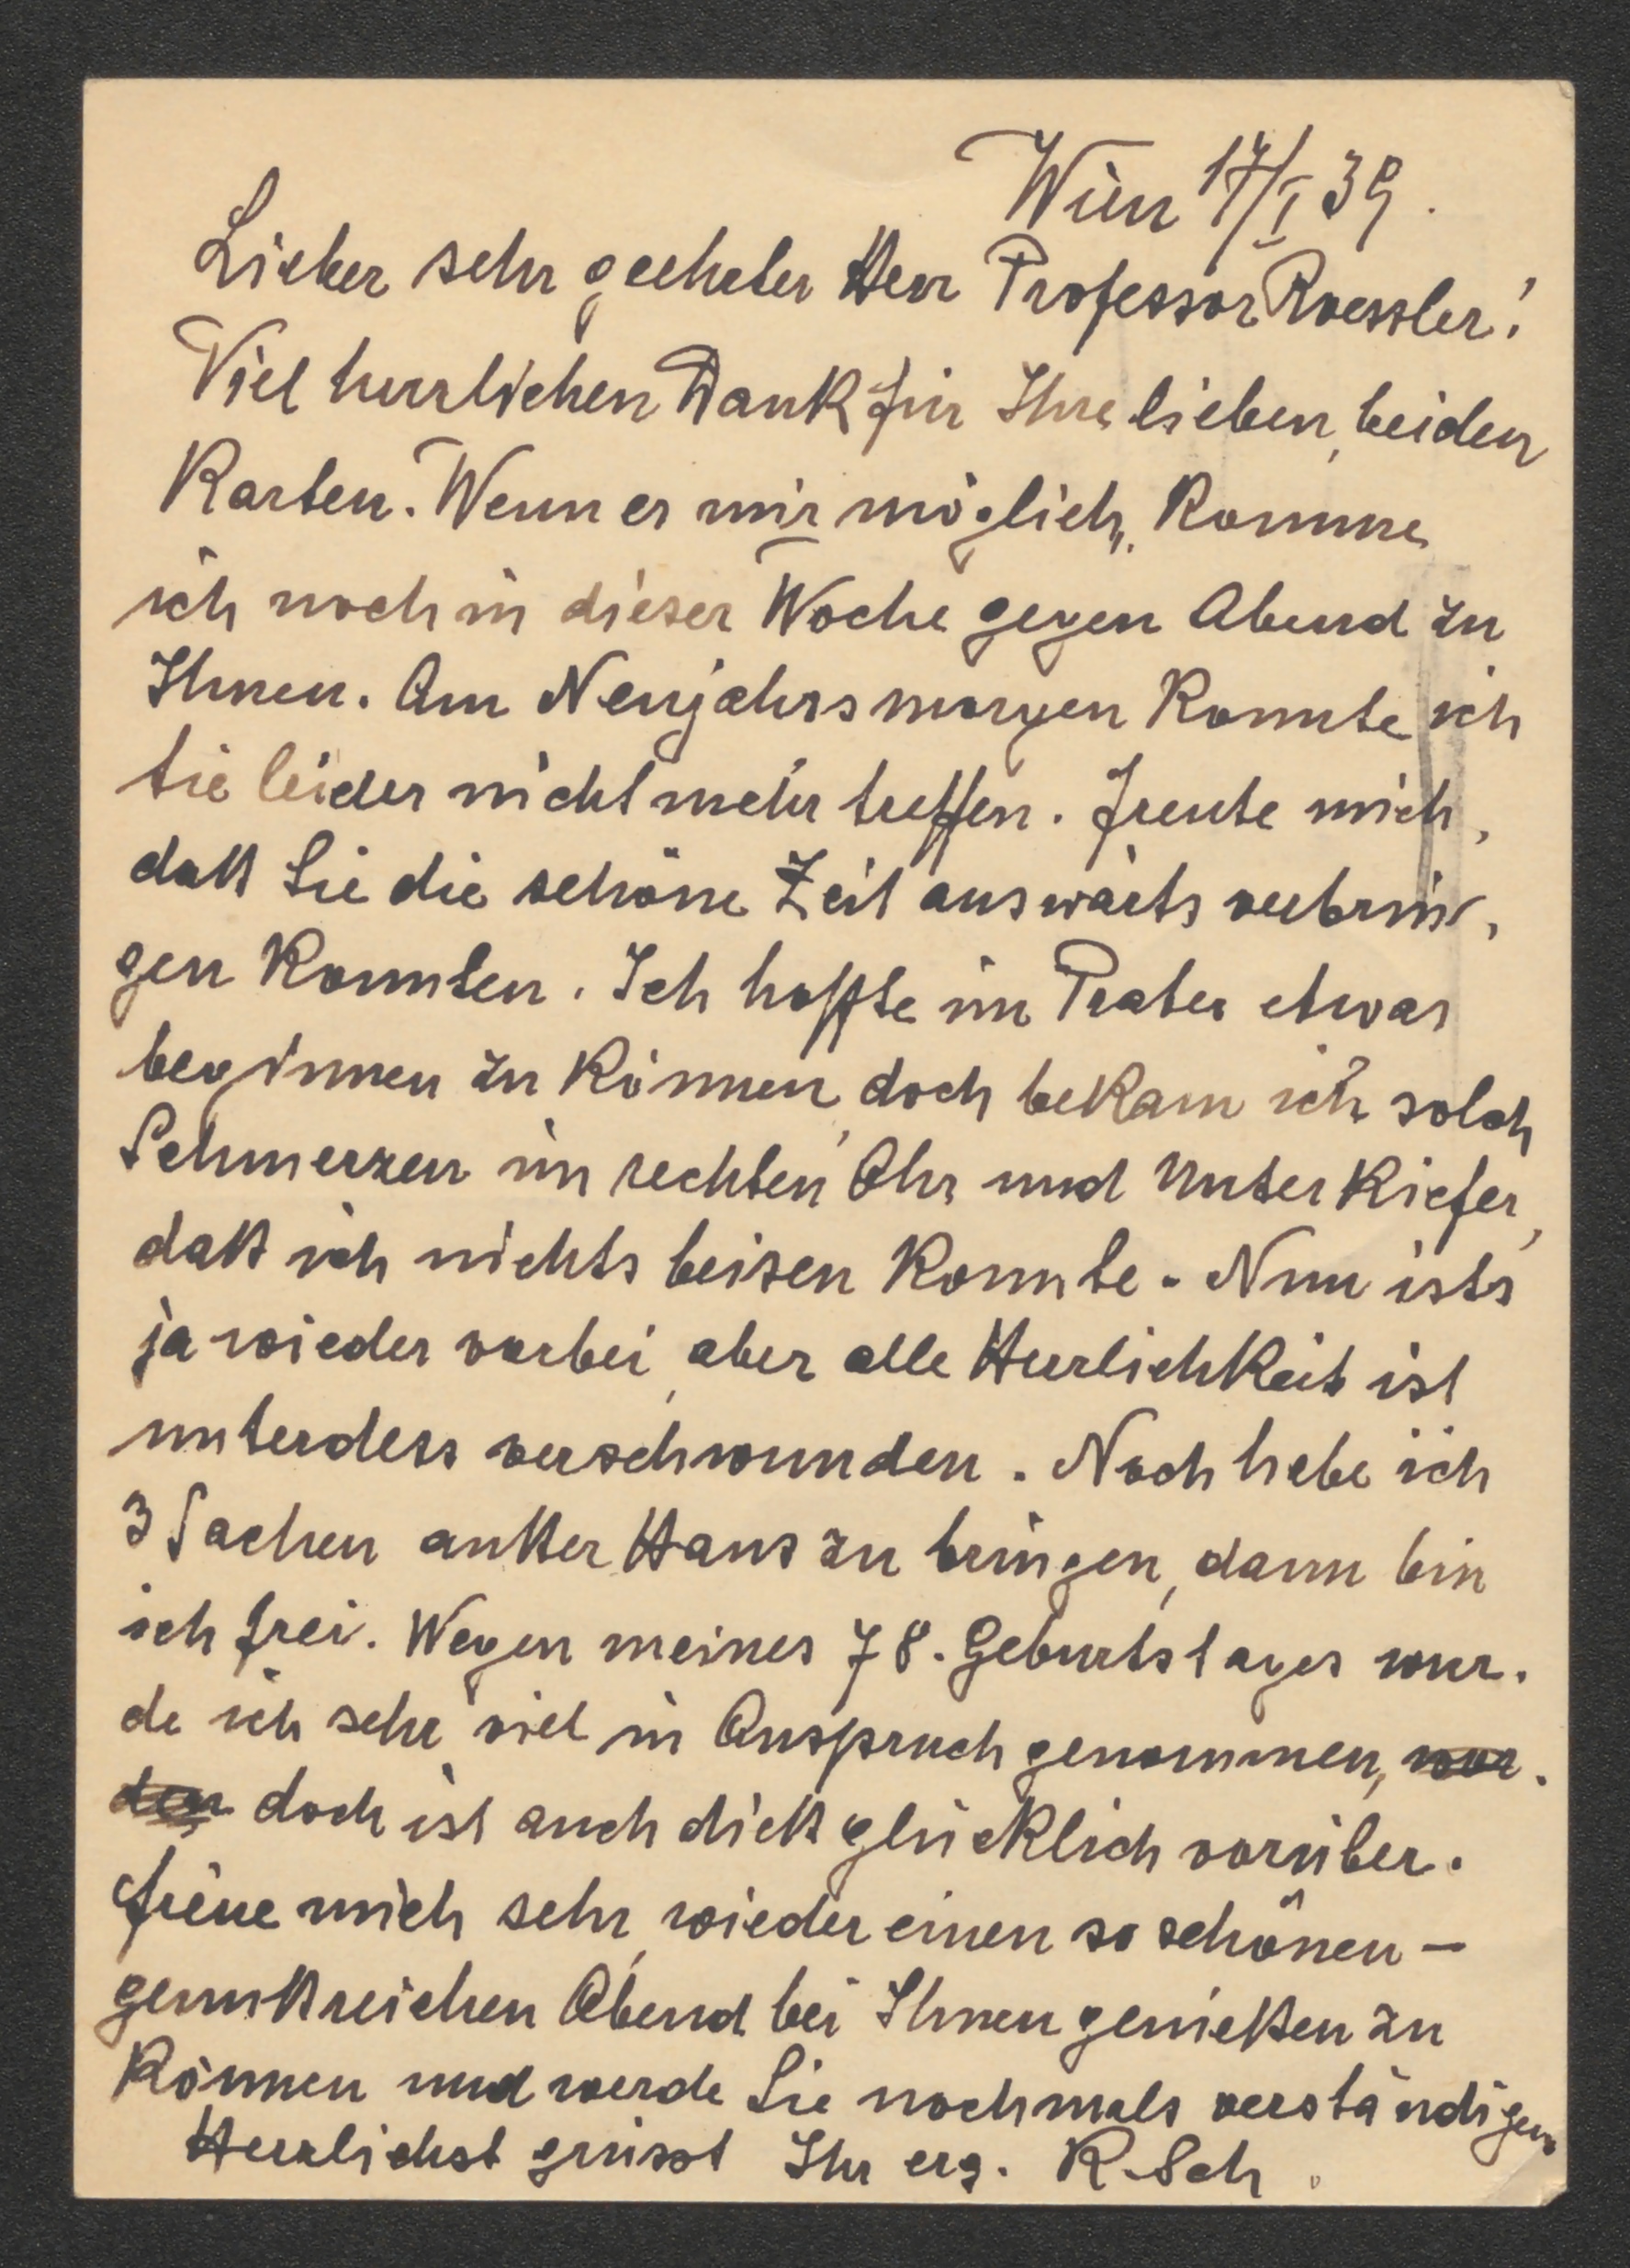 Wien 17/I 39.
Lieber sehr geehrter Herr Professor Roessler!
Viel herzlichen Dank für Ihre lieben, beiden
Karten. Wenn es mir möglich, komme
ich noch in dieser Woche gegen Abend zu
Ihnen. Am Neujahrsmorgen konnte ich
Sie leider nicht mehr treffen. Freute mich,
daß Sie die schöne Zeit auswärts verbrin-
gen konnten. Ich hoffte im Prater etwas
beginnen zu können, doch bekam ich solch
Schmerzen im rechten Ohr und Unterkiefer,
daß ich nichts beisen konnte. Nun ists
ja wieder vorbei, aber alle Herrlichkeit ist
unterdess verschwunden. Noch habe ich
3 Sachen außer Haus zu bringen, dann bin
ich frei. Wegen meines 78. Geburtstages wur-
de ich sehr viel in Anspruch genommen, wor-
den doch ist auch dieß glücklich vorüber.
Freue mich sehr, wieder einen so schönen –
genußreichen Abend bei Ihnen genießen zu
können und werde Sie nochmals verständigen
Herzlichst grüsst Ihr erg. R. Sch.